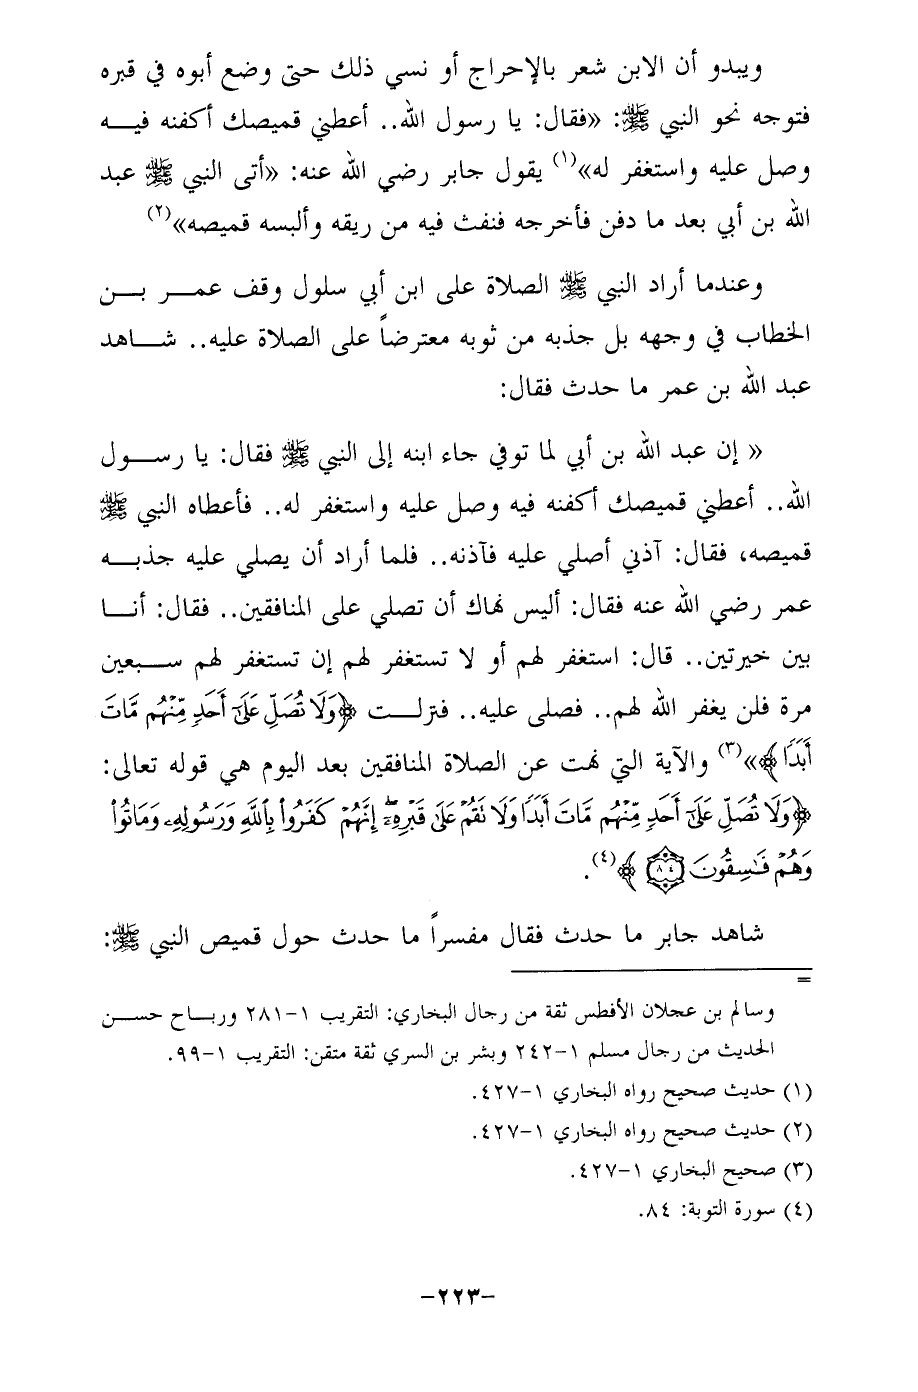 ويبدو أن الابن شعر بالإحراج أو نسي ذلك حتى وضع أبوه في قبره
فتوجه نحو النبي ﷺ: «فقال: يا رسول الله.. أعطني قميصك أكفنه فيه
وصل عليه واستغفر له»(١) يقول جابر رضي الله عنه: «أتى النبي ﷺ عبد
الله بن أبي بعد ما دفن فأخرجه فنفث فيه من ريقه وألبسه قميصه»(٢)
وعندما أراد النبي ﷺ الصلاة على ابن أبي سلول وقف عمر بن
الخطاب في وجهه بل جذبه من ثوبه معترضاً على الصلاة عليه.. شاهد
عبد الله بن عمر ما حدث فقال:
« إن عبد الله بن أبي لما توفي جاء ابنه إلى النبي ﷺ فقال: يا رسول
الله.. أعطني قميصك أكفنه فيه وصل عليه واستغفر له.. فأعطاه النبي ﷺ
قميصه، فقال: آذني أصلي عليه فآذنه.. فلما أراد أن يصلي عليه جذبه
عمر رضي الله عنه فقال: أليس نهاك أن تصلي على المنافقين.. فقال: أنا
بين خيرتين.. قال: استغفر لهم أو لا تستغفر لهم إن تستغفر لهم سبعين
مرة فلن يغفر الله لهم.. فصلى عليه.. فنزلت ﴿وَلَا تُصَلِّ عَلَىٰٓ أَحَدٍ مِّنْهُم مَّاتَ
أَبَدًا﴾»(٣) والآية التي نهت عن الصلاة المنافقين بعد اليوم هي قوله تعالى:
﴿وَلَا تُصَلِّ عَلَىٰٓ أَحَدٍ مِّنْهُم مَّاتَ أَبَدًا وَلَا تَقُمْ عَلَىٰ قَبْرِهِۦٓ ۖ إِنَّهُمْ كَفَرُوا۟ بِٱللَّهِ وَرَسُولِهِۦ وَمَاتُوا۟
وَهُمْ فَـٰسِقُونَ ۝٨٤ ﴾(٤).
شاهد جابر ما حدث فقال مفسراً ما حدث حول قميص النبي ﷺ:
=
وسالم بن عجلان الأفطس ثقة من رجال البخاري: التقريب ١-٢٨١ ورباح حسن
الحديث من رجال مسلم ١-٢٤٢ وبشر بن السري ثقة متقن: التقريب ١-٩٩.
(١) حديث صحيح رواه البخاري ١-٤٢٧.
(٢) حديث صحيح رواه البخاري ١-٤٢٧.
(٣) صحيح البخاري ١-٤٢٧.
(٤) سورة التوبة: ٨٤.
-٢٢٣-